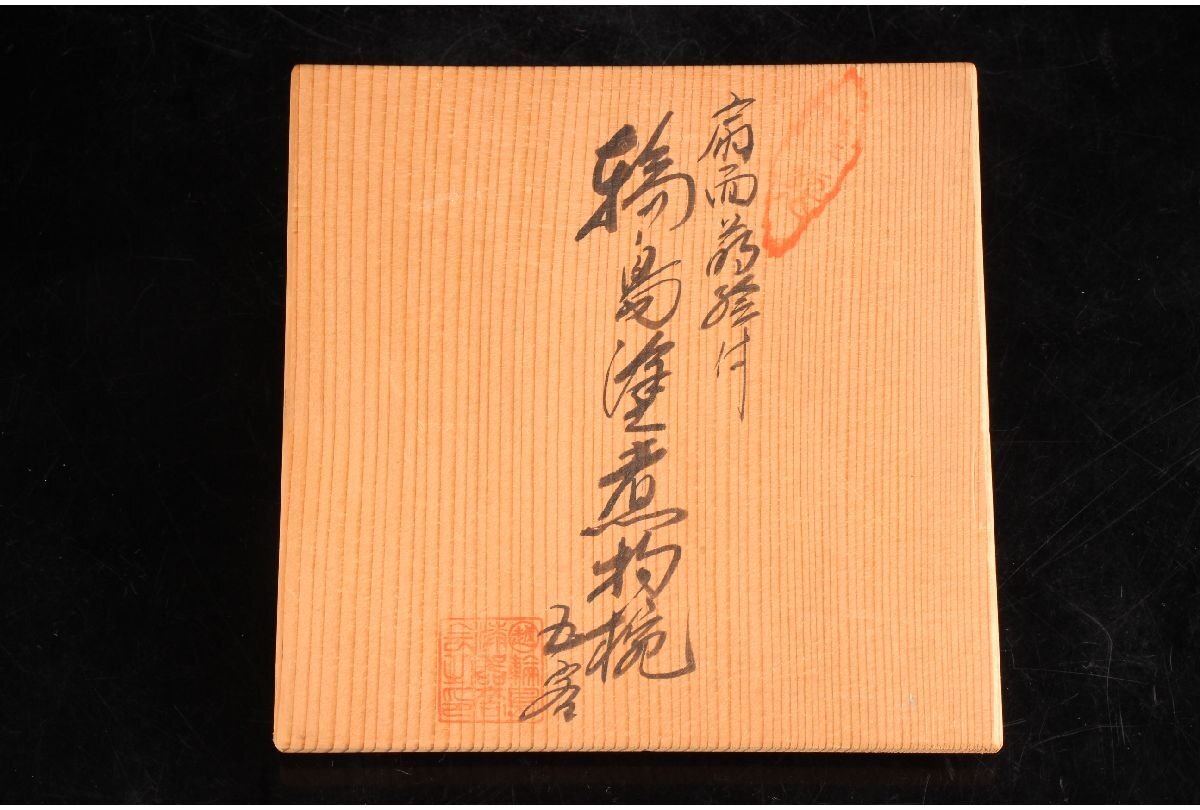 扇面蒔絵付
輪島塗煮物椀
五客